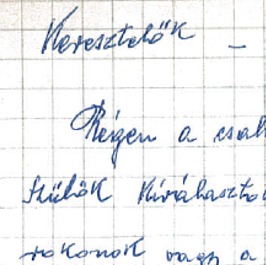 Keresztelők –
Régen a csal
szülők kiválaszto
rokonok vagy a